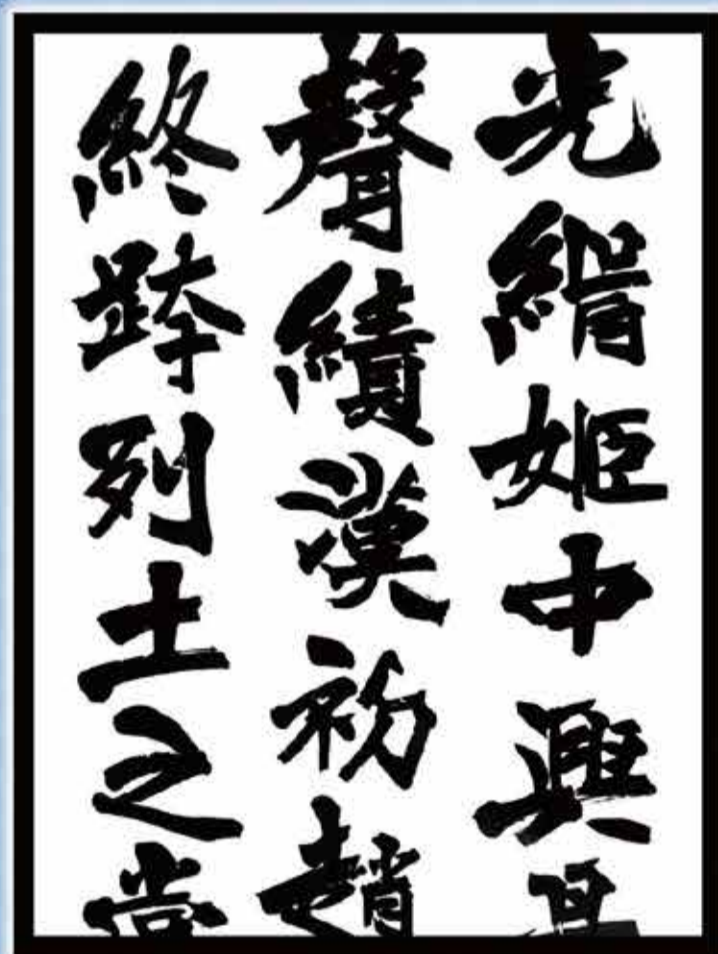 光縉姬中興
聲績漢初趙
終跨列土之賞